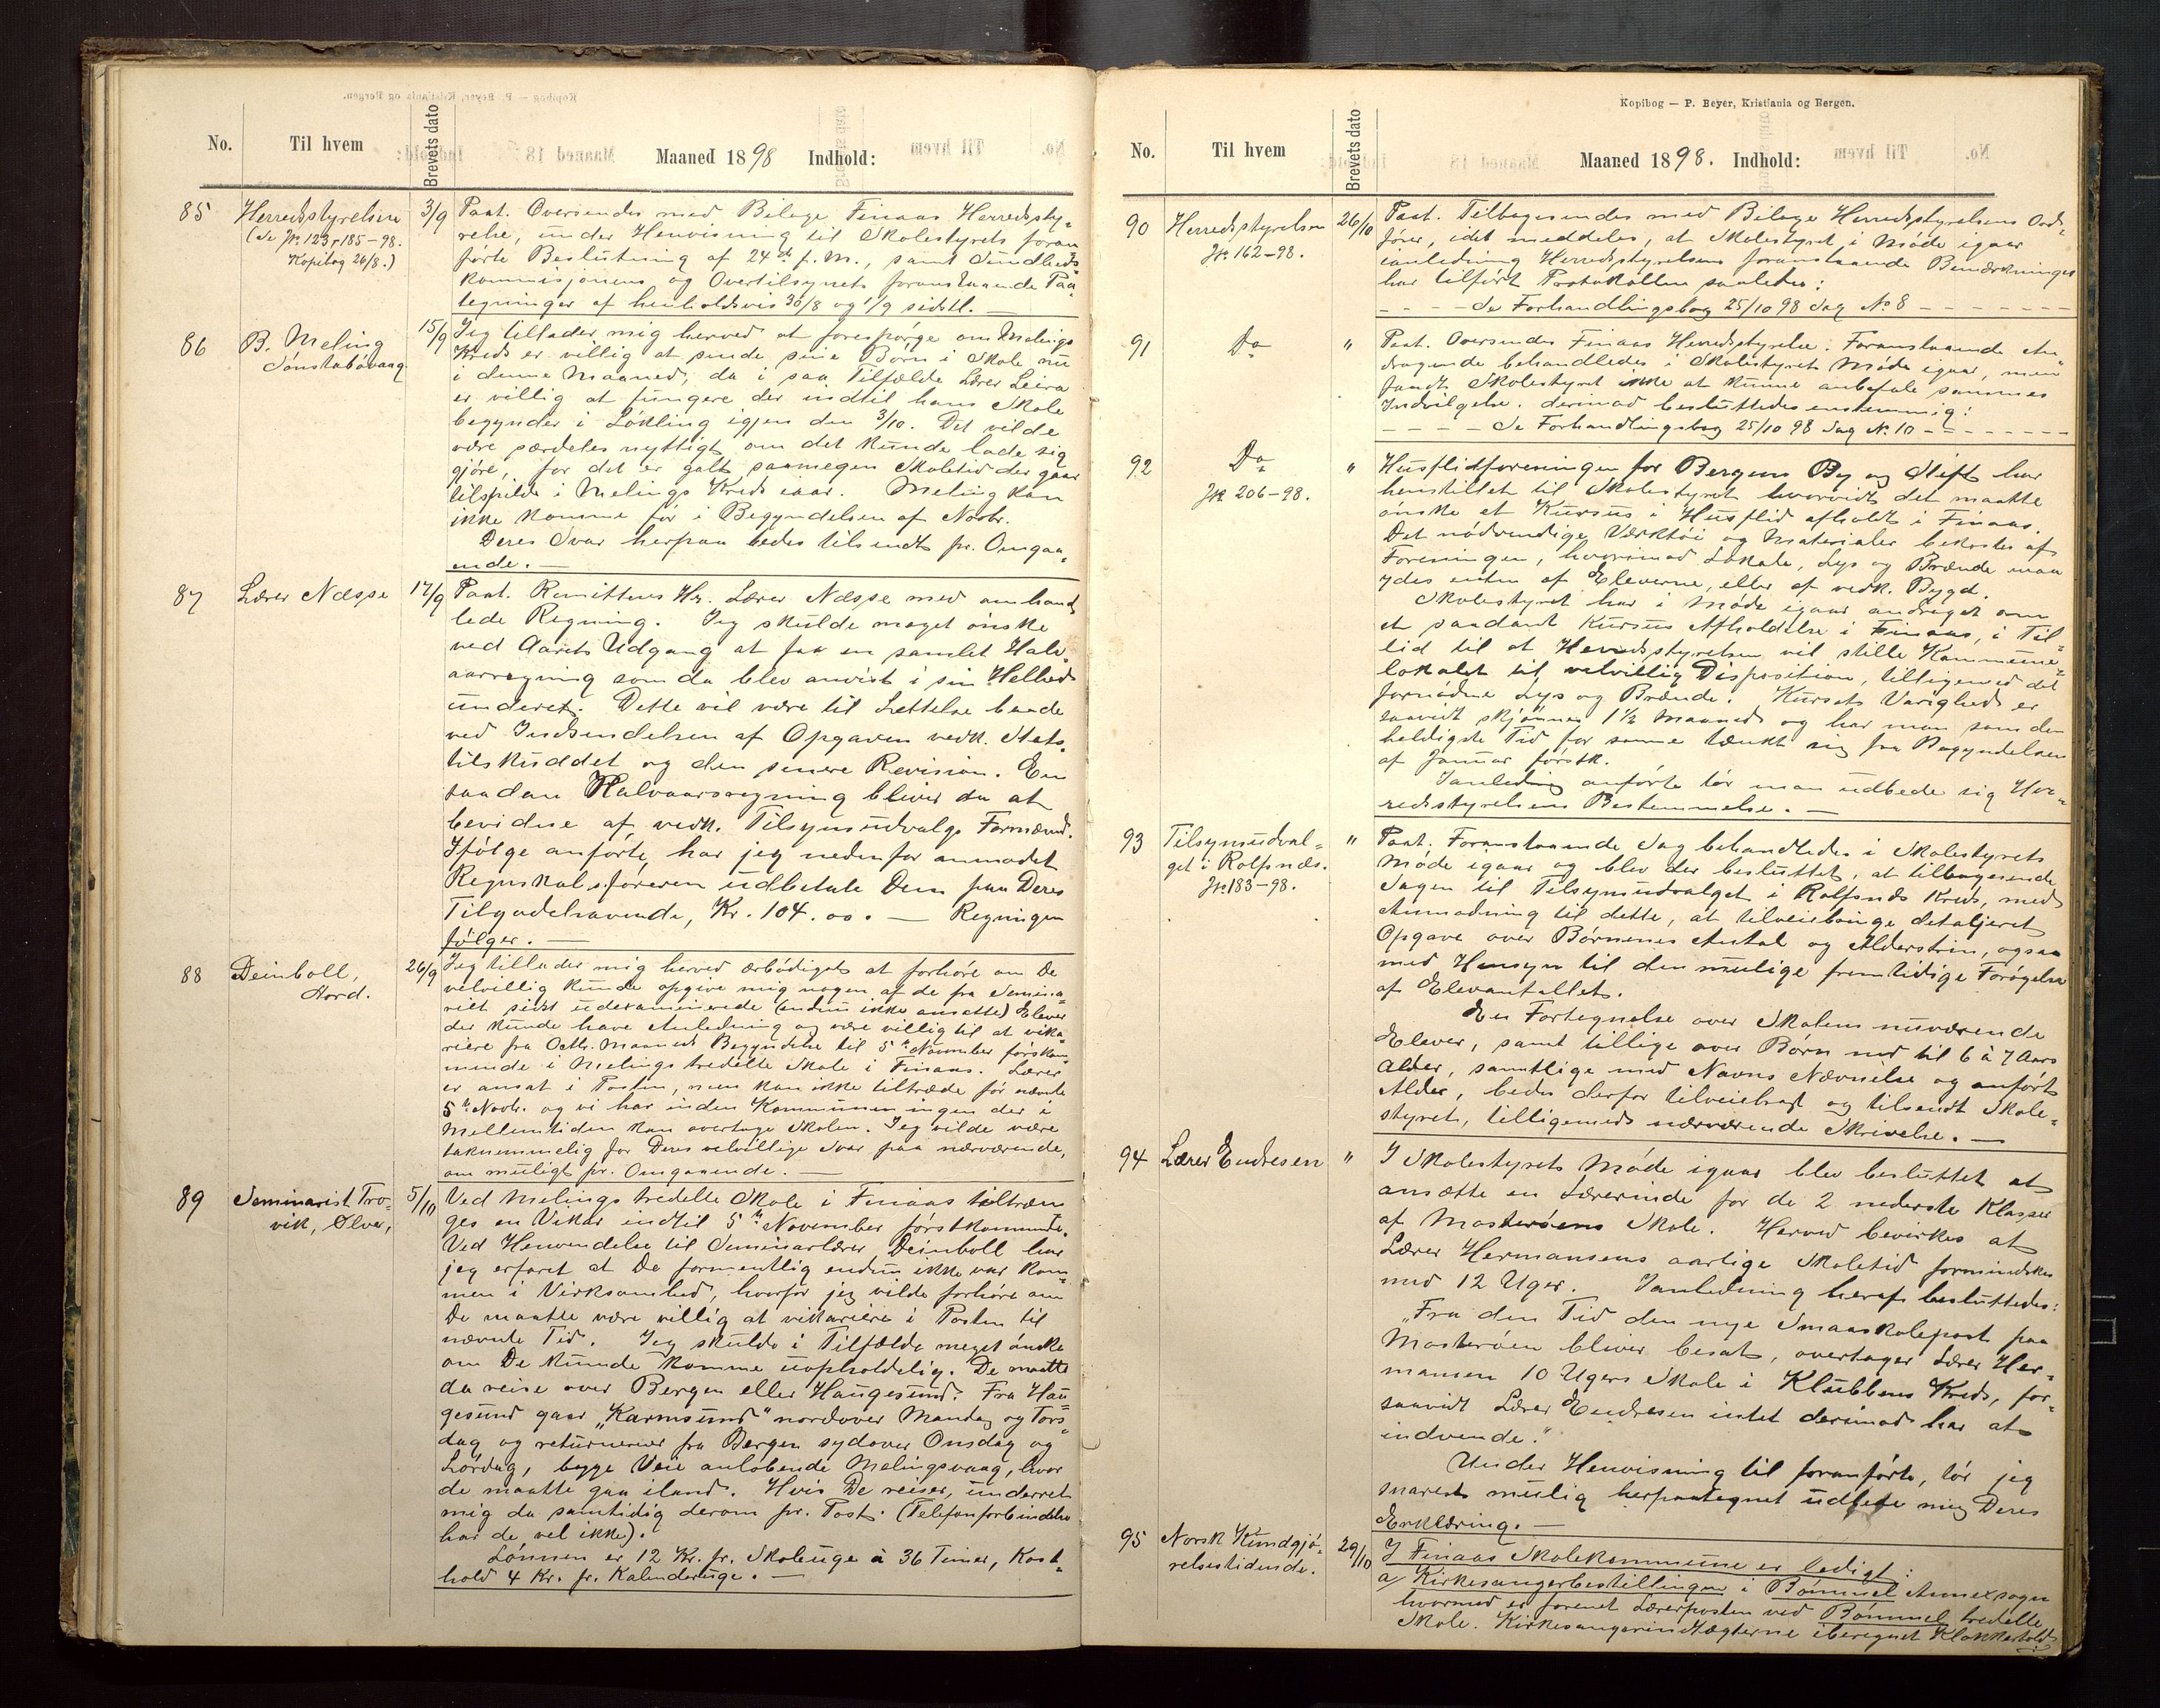 No.
Til hvem
Brevets dato
Maaned 1898 Indhold:
85
Herredsstyrelsen
(se Jr. 123, 185-98.
Kopibog 26/8.)
3/9
Paat. Oversendes med Bilage Finaas Herredsty-
relse, under Henvisning til Skolestyrets foran
förte Beslutning af 24de f.M., samt Sundheds-
kommisjonens og Overtilsynets foranstaaende Paa-
tegninger af henholdsvis 30/8 og 1/9 sidstl. —
86
B. Meling
Sönstabövaag
15/9
Jeg tillader mig herved at forespörge om Melings
Kreds er villig at sende sine Börn i Skole nu
i denne Maaned, da i saa Tilfælde Lærer Leira
er villig at fungere der indtil hans Skole
begynder i Lökling igjen den 3/10. Det vilde
være særdeles nyttigt om det kunde lade sig
gjöre, for det er galt saamegen Skoletid der gaar
tilspilde i Melings Kreds iaar. Meling kan
ikke komme för i Begyndelsen af Novbr.
Deres Svar herpaa bedes tilsendt pr. Omgaa-
ende. —
87
Lærer Næsse
17/9
Paat. Remitteres Hr. Lærer Næsse med omhand
lede Regning. Jeg skulde meget önske
ved Aarets Udgang at faa en samlet Halv-
aarsregning som da blev anvist i sin Helhed
underet. Dette vil være til Lettelse baade
ved Indsendelsen af Opgaven vedk. Stats-
tilskuddet og den senere Revision. En
saadan Halvaarsregning bliver da at
bevidne af vedk. Tilsynsudvalgs Formænd.
Ifölge anförte har jeg nedenfor anmodet
Regnskabsföreren udbetale Dem paa Deres
Tilgodehavende, Kr. 104.00. — Regningen
fölger. —
88
Deinboll,
Stord.
26/9
Jeg tillader mig herved ærbödigst at forhöre om De
velvillig kunde opgive mig nogen af de fra Semina-
riet sidst udexaminerede (endnu ikke ansatte) Elever
der kunde have Anledning og være villig til at vika-
riere fra Octbr. Maaneds Begyndelse til 5te November förstkom-
mende i Melings tredelte Skole i Finaas. Lærer
er ansat i Posten, men kan ikke tiltræde för nævnte
5te Novbr. og vi har inden Kommunen ingen der i
Mellemtiden kan overtage Skolen. Jeg vilde være
taknemmelig for Deres velvillige Svar paa nærværende,
om muligt pr. Omgaaende. —
89
Seminarist Tro-
vik, Ølver,
5/10
Ved Melings tredelte Skole i Finaas tiltræn
ges en Vikar indtil 5te November förstkommende.
Ved Henvendelse til Seminarlærer Deinboll har
jeg erfaret at De formentlig endnu ikke var kom-
men i Virksomhed, hvorfor jeg vilde forhöre om
De maatte være villig at vikariere i Posten til
nævnte Tid. Jeg skulde i Tilfælde meget önske
om De kunde komme uopholdelig. De maatte
da reise over Bergen eller Haugesund. Fra Hau-
gesund gaar „Karmsund" nordover Mandag og Tors-
dag og returnerer fra Bergen sydover Onsdag og
Lördag, begge Veie anlöbende Melingsvaag, hvor
de maatte gaa iland. Hvis De reiser, underret
mig da samtidig derom pr. Post. (Telefonforbindelse
har de vel ikke).
Lönnen er 12 Kr. pr. Skoleuge à 36 Timer, Kost-
hold 4 Kr. pr. Kalenderuge. —
Kopibog — P. Beyer, Kristiania og Bergen.
No.
Til hvem
Brevets dato
Maaned 1898. Indhold:
90
Herredsstyrelsen
Jr. 162-98.
26/10
Paat. Tilbagesendes med Bilage Herredsstyrelsens Ord-
förer, idet meddeles, at Skolestyret i Möde igaar
ianledning Herredsstyrelsens foranstaaende Bemærkninger
har tilfört Protokollen saaledes:
- - - Se Forhandlingsbog 25/10 98 Sag No 8 - - - - - -
91
Do
"
Paat. Oversendes Finaas Herredsstyrelse. Foranstaaende An-
dragende behandledes i Skolestyrets Möde igaar, men
fandt Skolestyret ikke at kunne anbefale sammes
Indvilgelse. derimod besluttedes enstemmig:
- - - - Se Forhandlingsbog 25/10 98 Sag No. 10 - - - - - -
92
Do
Jr. 206-98.
"
Husflidforeningen for Bergens By og Stift har
henstillet til Skolestyret hvorvidt det maatte
önske et Kursus i Husflid afholdt i Finaas.
Det nödvendige Værktöi og Materialer bekostes af
Foreningen, hvorimod Lokale, Lys og Brænde maa
ydes enten af Eleverne, eller af vedk. Bygd.
Skolestyret har i Möde igaar andraget om
et saadant Kursus Afholdelse i Finaas, i Til-
lid til at Herredsstyrelsen vil stille Kommune-
lokalet til velvillig Disposition, tilligemed det
fornödne Lys og Brænde. Kursets Varighed er
saavidt skjönnes 1½ Maaned og har man som den
heldigste Tid for samme tænkt sig fra Begyndelsen
af Januar förstk.
Ianledning anförte tör man udbede sig Her-
redsstyrelsens Bestemmelse. —
93
Tilsynsudval-
get i Rolfsnes.
Jr. 183-98.
"
Paat. Foranstaaende Sag behandledes i Skolestyrets
Möde igaar og blev der besluttet, at tilbagesende
Sagen til Tilsynsudvalget i Rolfsnes Kreds, med
Anmodning til dette, at tilveiebringe detaljeret
Opgave over Börnenes Antal og Alderstrin, ogsaa
med Hensyn til den mulige fremtidige Forögelse
af Elevantallet.
En Fortegnelse over Skolens nuværende
Elever, samt tillige over Börn ned til 6 à 7 Aars
Alder, samtlige med Navns Nævnelse og anfört
Alder, bedes derfor tilveiebragt og tilsendt Skole-
styret, tilligemed nærværende Skrivelse. —
94
Lærer Endresen
"
I Skolestyrets Möde igaar blev besluttet at
ansætte en Lærerinde for de 2 nederste Klasser
af Mosteröens Skole. Herved bevirkes at
Lærer Hermansens aarlige Skoletid formindskes
med 12 Uger. Ianledning heraf besluttedes:
„Fra den Tid den nye Smaaskolepost paa
Mosteröen bliver besat, overtager Lærer Her-
mansen 10 Ugers Skole i Klubbens Kreds, for-
saavidt Lærer Endresen intet derimod har at
indvende."
Under Henvisning til foranförte, tör jeg
snarest mulig herpaategnet udbede mig Deres
Erklæring. —
95
Norsk Kundgjö-
relsestidende.
29/10
I Finaas Skolekommune er ledigt:
a) Kirkesangerbestillingen i Bömmel Annexsogn
hvormed er forenet Lærerposten ved Bömmel tredelte
Skole. Kirkesangerindtægterne iberegnet Klokkertold